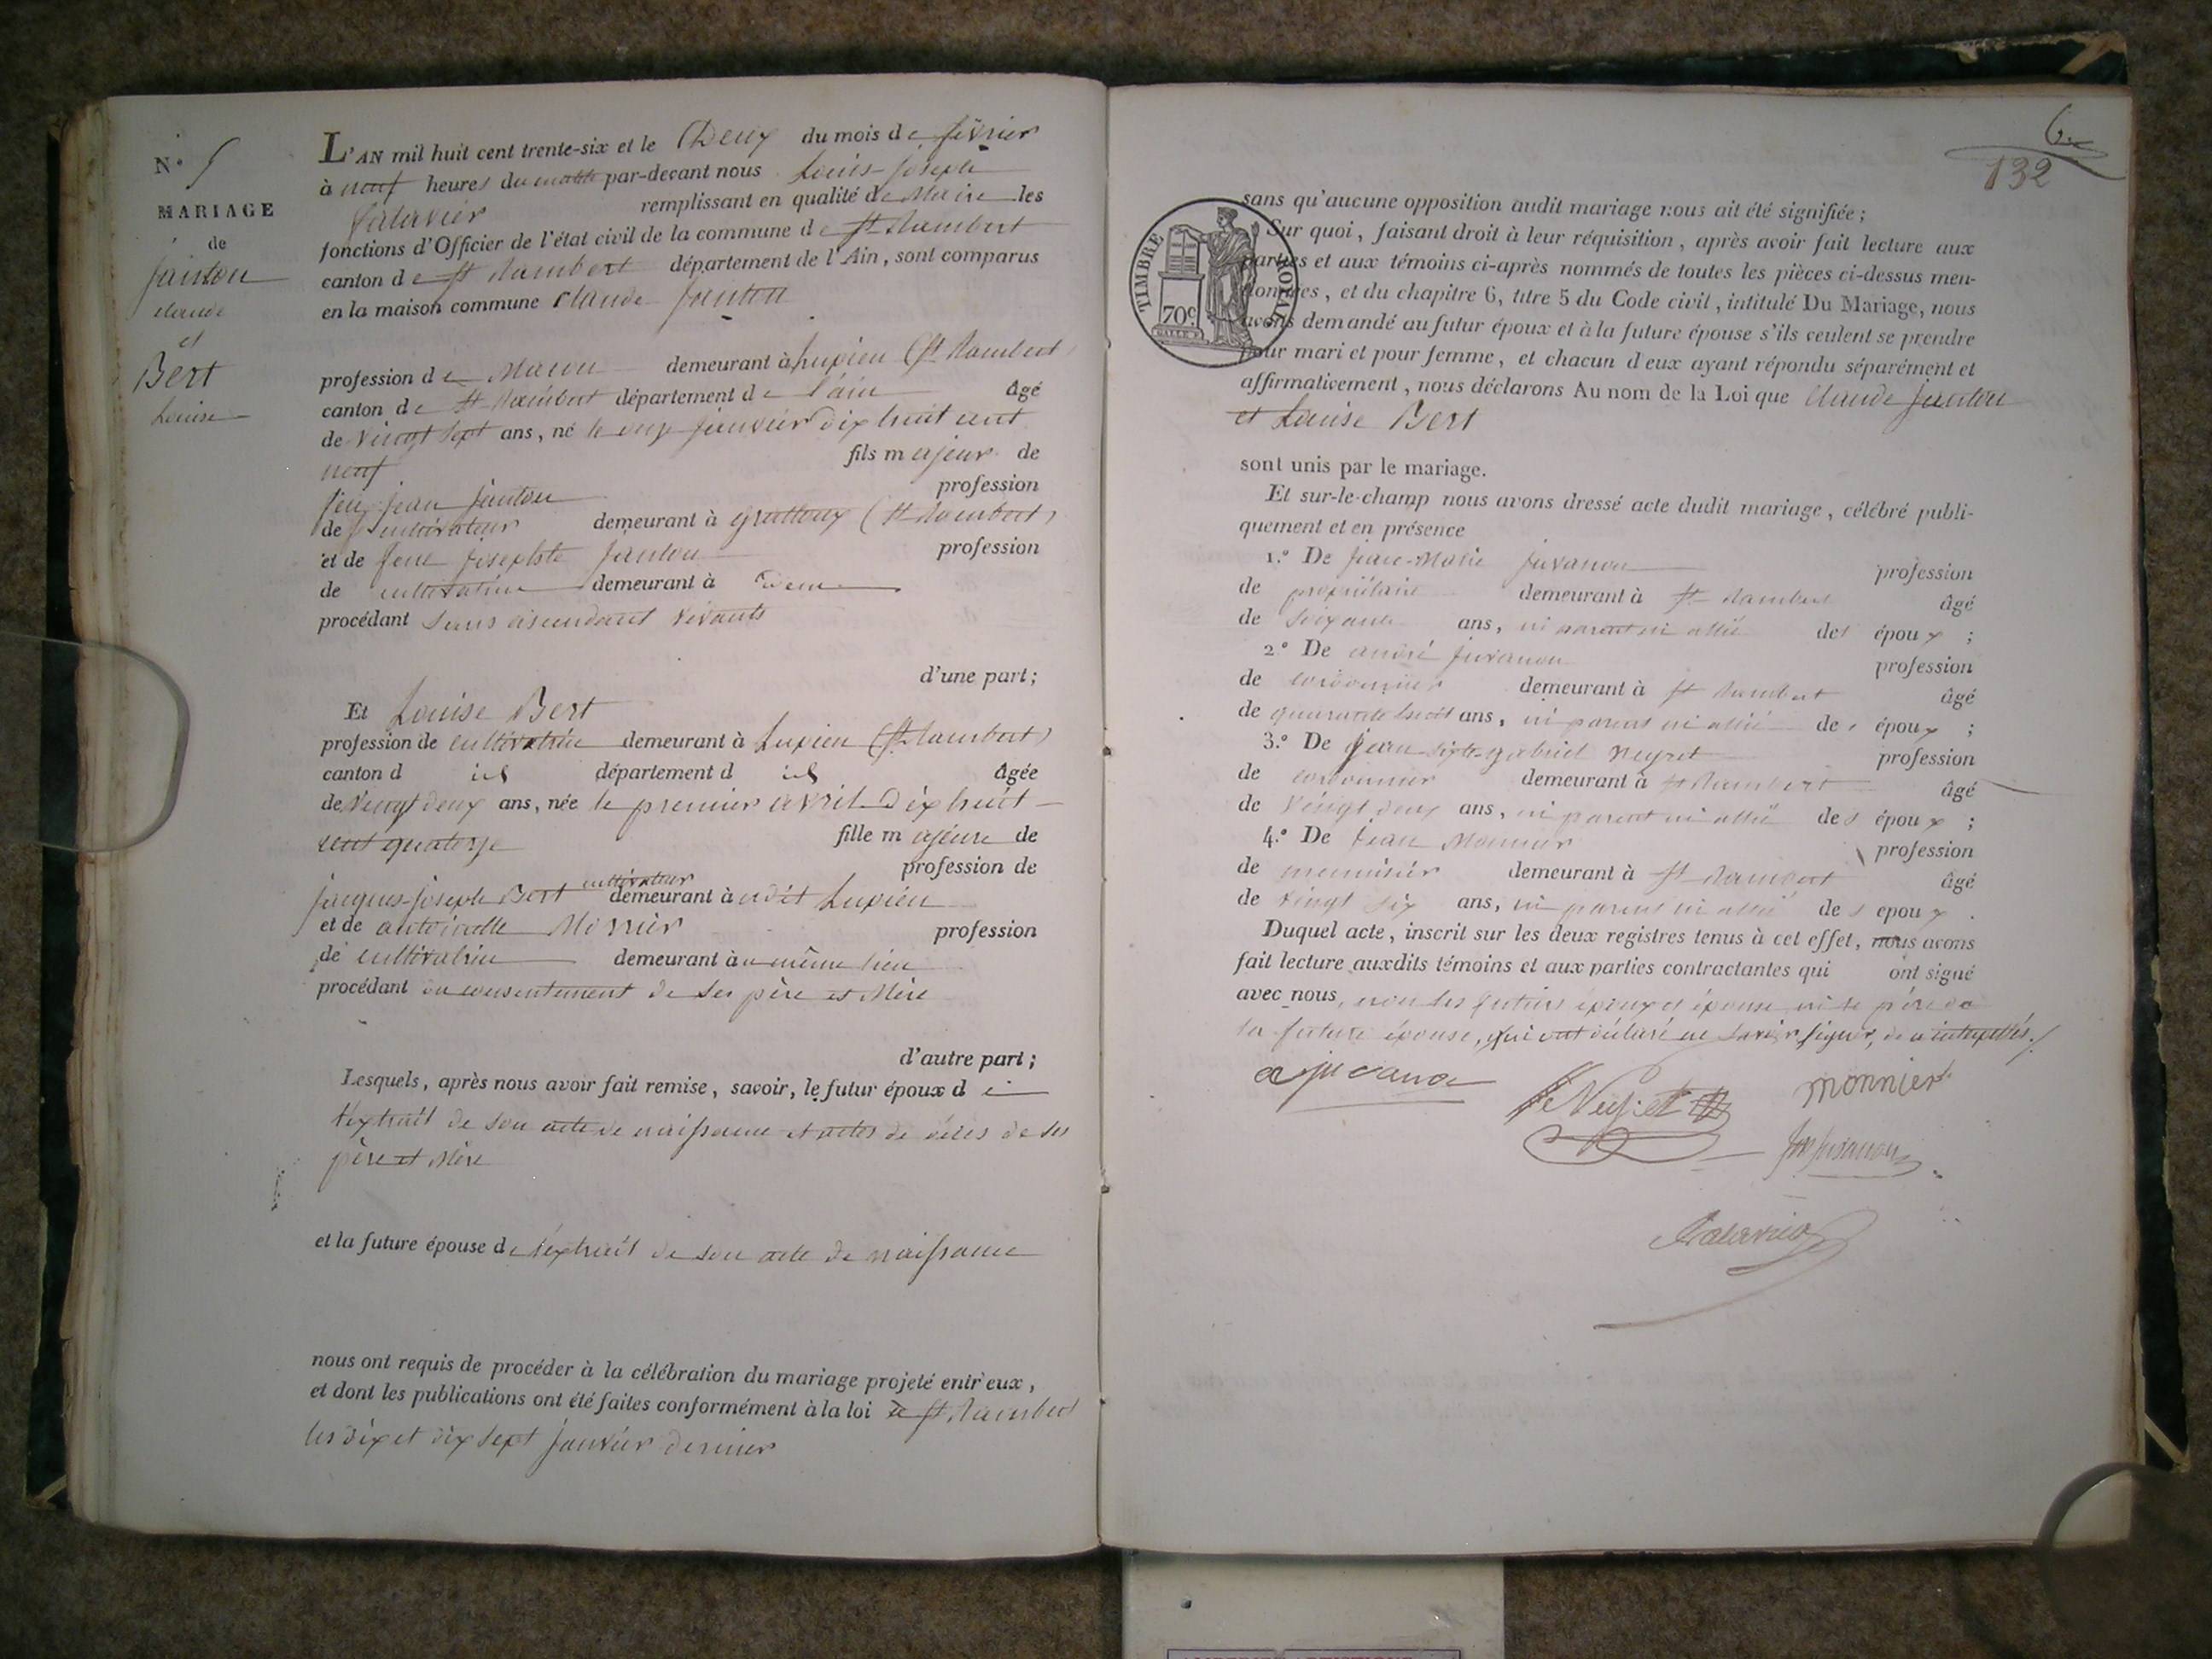 N.° 5
MARIAGE
de
Janton
claude
et
Bert
Louise
L'AN mil huit cent trente-six et le Deux du mois de février
à neuf heures du matin par-devant nous Louis-Joseph
remplissant en qualité de Maire les
fonctions d'Officier de l'état civil de la commune de St Rambert
canton de St Rambert département de l'Ain, sont comparus
en la maison commune Claude Janton
profession de Maçon demeurant à Lupieu (St Rambert)
canton de St Rambert département de l'ain âgé
de vingt sept ans, né le onze janvier dix huit cent
neuf fils majeur de
feu jean janton profession
de cultivateur demeurant à (St Rambert)
et de feue Josephte Janton profession
de cultivatrice demeurant à idem
procédant sans ascendant vivants
d'une part;
Et Louise Bert
profession de cultivatrice demeurant à Lupieu (St Rambert)
canton d id département d id âgée
de vingt deux ans, née le premier avril dix huit
cent quatorze fille majeure de
profession de
jacques-joseph Bert cultivateur demeurant à udit Lupieu
et de antoinette Monnier profession
de cultivatrice demeurant à u même lieu
procédant du consentement de ses père et Mère
d'autre part;
Lesquels, après nous avoir fait remise, savoir, le futur époux de
l'extrait de son acte de naissance et actes de décès de ses
père et Mère
et la future épouse de l'extrait de son acte de naissance
nous ont requis de procéder à la célébration du mariage projeté entr'eux,
et dont les publications ont été faites conformément à la loi à St Rambert
les dix et dix sept janvier dernier
132
TIMBRE ROYAL
70c
sans qu'aucune opposition audit mariage nous ait été signifiée;
Sur quoi, faisant droit à leur réquisition, après avoir fait lecture aux
parties et aux témoins ci-après nommés de toutes les pièces ci-dessus men-
tionnées, et du chapitre 6, titre 5 du Code civil, intitulé Du Mariage, nous
avons demandé au futur époux et à la future épouse s'ils veulent se prendre
pour mari et pour femme, et chacun d'eux ayant répondu séparément et
affirmativement, nous déclarons Au nom de la Loi que Claude Janton
et Louise Bert
sont unis par le mariage.
Et sur-le-champ nous avons dressé acte dudit mariage, célébré publi-
quement et en présence
1.° De Jean-Marie Juvanon profession
de propriétaire demeurant à St Rambert âgé
de soixante ans, ni parent ni allié des époux;
2.° De andré Juvanon profession
de cordonnier demeurant à St Rambert âgé
de quarante huit ans, ni parent ni allié des époux;
3.° De Jean-Sixte-gabriel Neyret profession
de cordonnier demeurant à St Rambert âgé
de vingt deux ans, ni parent ni allié des époux;
4.° De Jean Monnier profession
de menuisier demeurant à St Rambert âgé
de vingt six ans, ni parent ni allié des epoux.
Duquel acte, inscrit sur les deux registres tenus à cet effet, nous avons
fait lecture auxdits témoins et aux parties contractantes qui ont signé
avec nous, non les futurs époux et épouse ni le père de
la future épouse, qui ont déclaré ne savoir signer, de ce interpellés./
a juvanon
Neyret
monnier